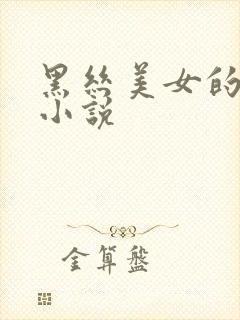 黑丝美女的
小说
金算盘